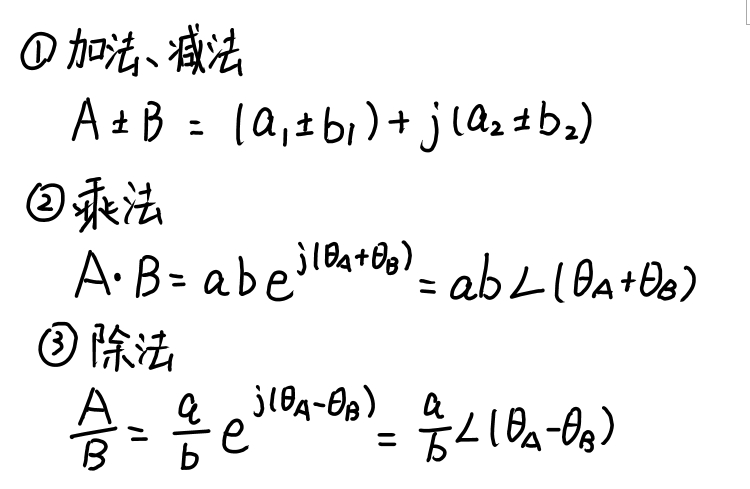 ① 加法、减法
A ± B = (a₁ ± b₁) + j(a₂ ± b₂)
② 乘法
A · B = a b e^{j(θ_A+θ_B)} = ab∠(θ_A+θ_B)
③ 除法
A/B = a/b e^{j(θ_A-θ_B)} = a/b∠(θ_A-θ_B)